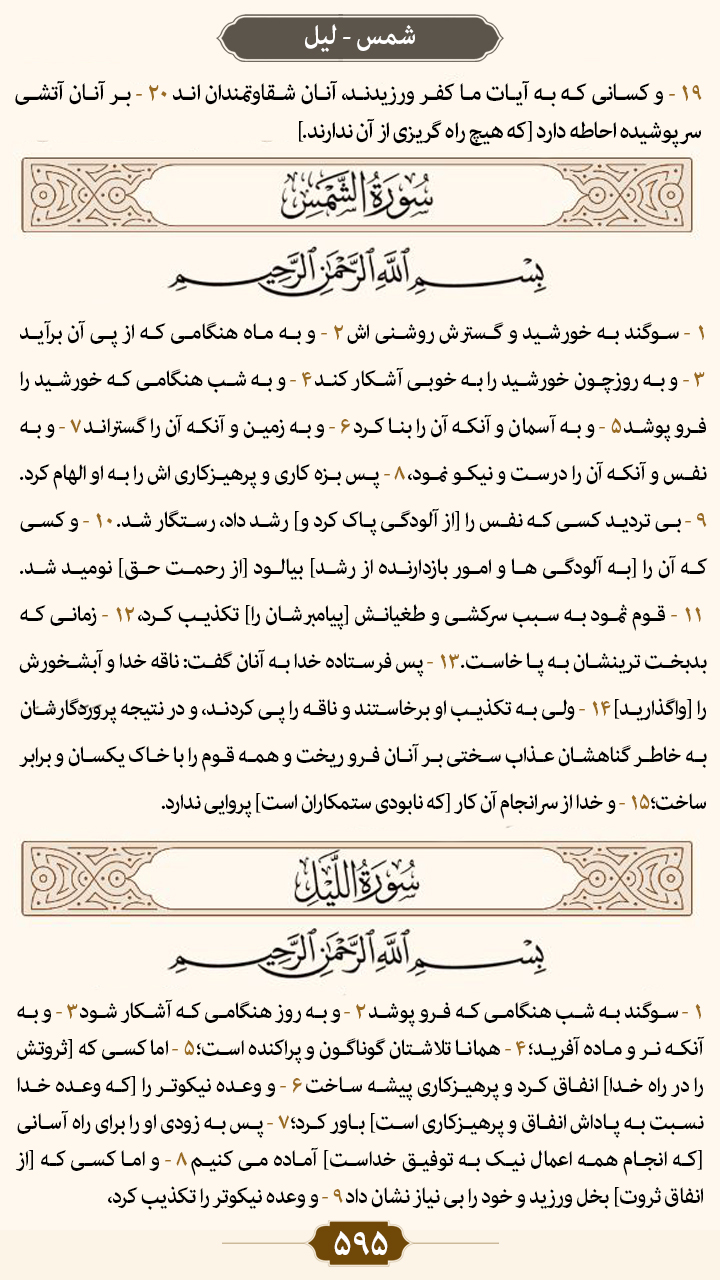 شمس - لیل
۱۹ - و کسانی که به آیات ما کفر ورزیدند، آنان شقاوتمندان اند ۲۰ - بر آنان آتشی
سرپوشیده احاطه دارد [که هیچ راه گریزی از آن ندارند.]
سُورَةُ الشَّمْسِ
بِسْمِ اللَّهِ الرَّحْمَٰنِ الرَّحِيمِ
۱ - سوگند به خورشید و گسترش روشنی اش ۲ - و به ماه هنگامی که از پی آن برآید
۳ - و به روز چون خورشید را به خوبی آشکار کند ۴ - و به شب هنگامی که خورشید را
فرو پوشد ۵ - و به آسمان و آنکه آن را بنا کرد ۶ - و به زمین و آنکه آن را گستراند ۷ - و به
نفس و آنکه آن را درست و نیکو نمود، ۸ - پس بزه کاری و پرهیزکاری اش را به او الهام کرد.
۹ - بی تردید کسی که نفس را [از آلودگی پاک کرد و] رشد داد، رستگار شد. ۱۰ - و کسی
که آن را [به آلودگی ها و امور بازدارنده از رشد] بیالود [از رحمت حق] نومید شد.
۱۱ - قوم ثمود به سبب سرکشی و طغیانش [پیامبرشان را] تکذیب کرد، ۱۲ - زمانی که
بدبخت ترینشان به پا خاست. ۱۳ - پس فرستاده خدا به آنان گفت: ناقه خدا و آبشخورش
را [واگذارید] ۱۴ - ولی به تکذیب او برخاستند و ناقه را پی کردند، و در نتیجه پروردگارشان
به خاطر گناهشان عذاب سختی بر آنان فرو ریخت و همه قوم را با خاک یکسان و برابر
ساخت؛ ۱۵ - و خدا از سرانجام آن کار [که نابودی ستمکاران است] پروایی ندارد.
سُورَةُ اللَّيْلِ
بِسْمِ اللَّهِ الرَّحْمَٰنِ الرَّحِيمِ
۱ - سوگند به شب هنگامی که فرو پوشد ۲ - و به روز هنگامی که آشکار شود ۳ - و به
آنکه نر و ماده آفرید؛ ۴ - همانا تلاشتان گوناگون و پراکنده است؛ ۵ - اما کسی که [ثروتش
را در راه خدا] انفاق کرد و پرهیزکاری پیشه ساخت ۶ - و وعده نیکوتر را [که وعده خدا
نسبت به پاداش انفاق و پرهیزکاری است] باور کرد؛ ۷ - پس به زودی او را برای راه آسانی
[که انجام همه اعمال نیک به توفیق خداست] آماده می کنیم ۸ - و اما کسی که [از
انفاق ثروت] بخل ورزید و خود را بی نیاز نشان داد ۹ - و وعده نیکوتر را تکذیب کرد،
۵۹۵